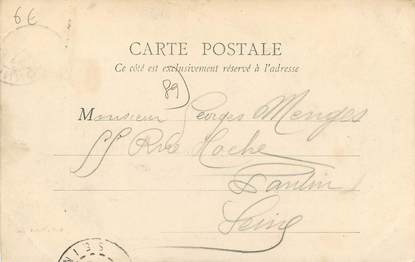 6€
CARTE POSTALE
Ce côté est exclusivement réservé à l'adresse
89
Monsieur Georges Menges
55 Rue Hoche
Pantin
Seine
SEIN